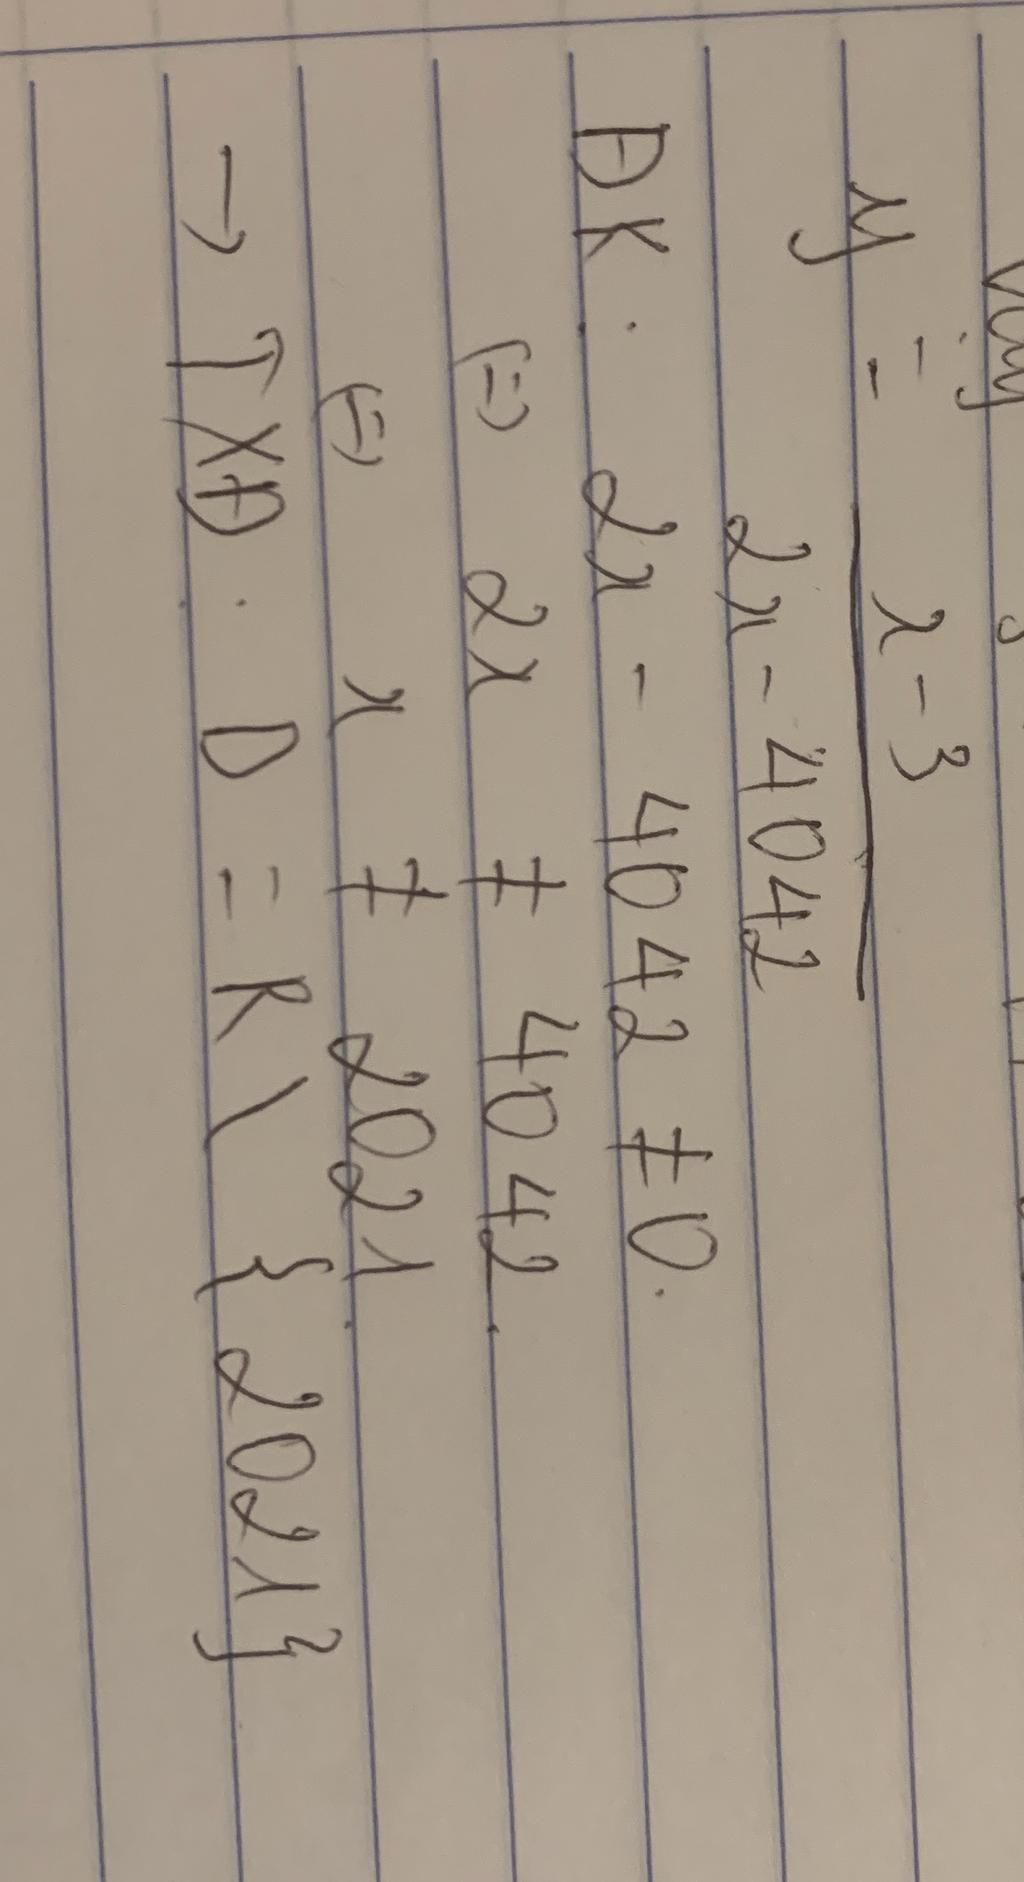 Vậy
y = x - 3
2x - 4042
ĐK: 2x - 4042 ≠ 0.
(=) 2x ≠ 4042.
(=) x ≠ 2021.
→ TXĐ: D = R \ {2021}